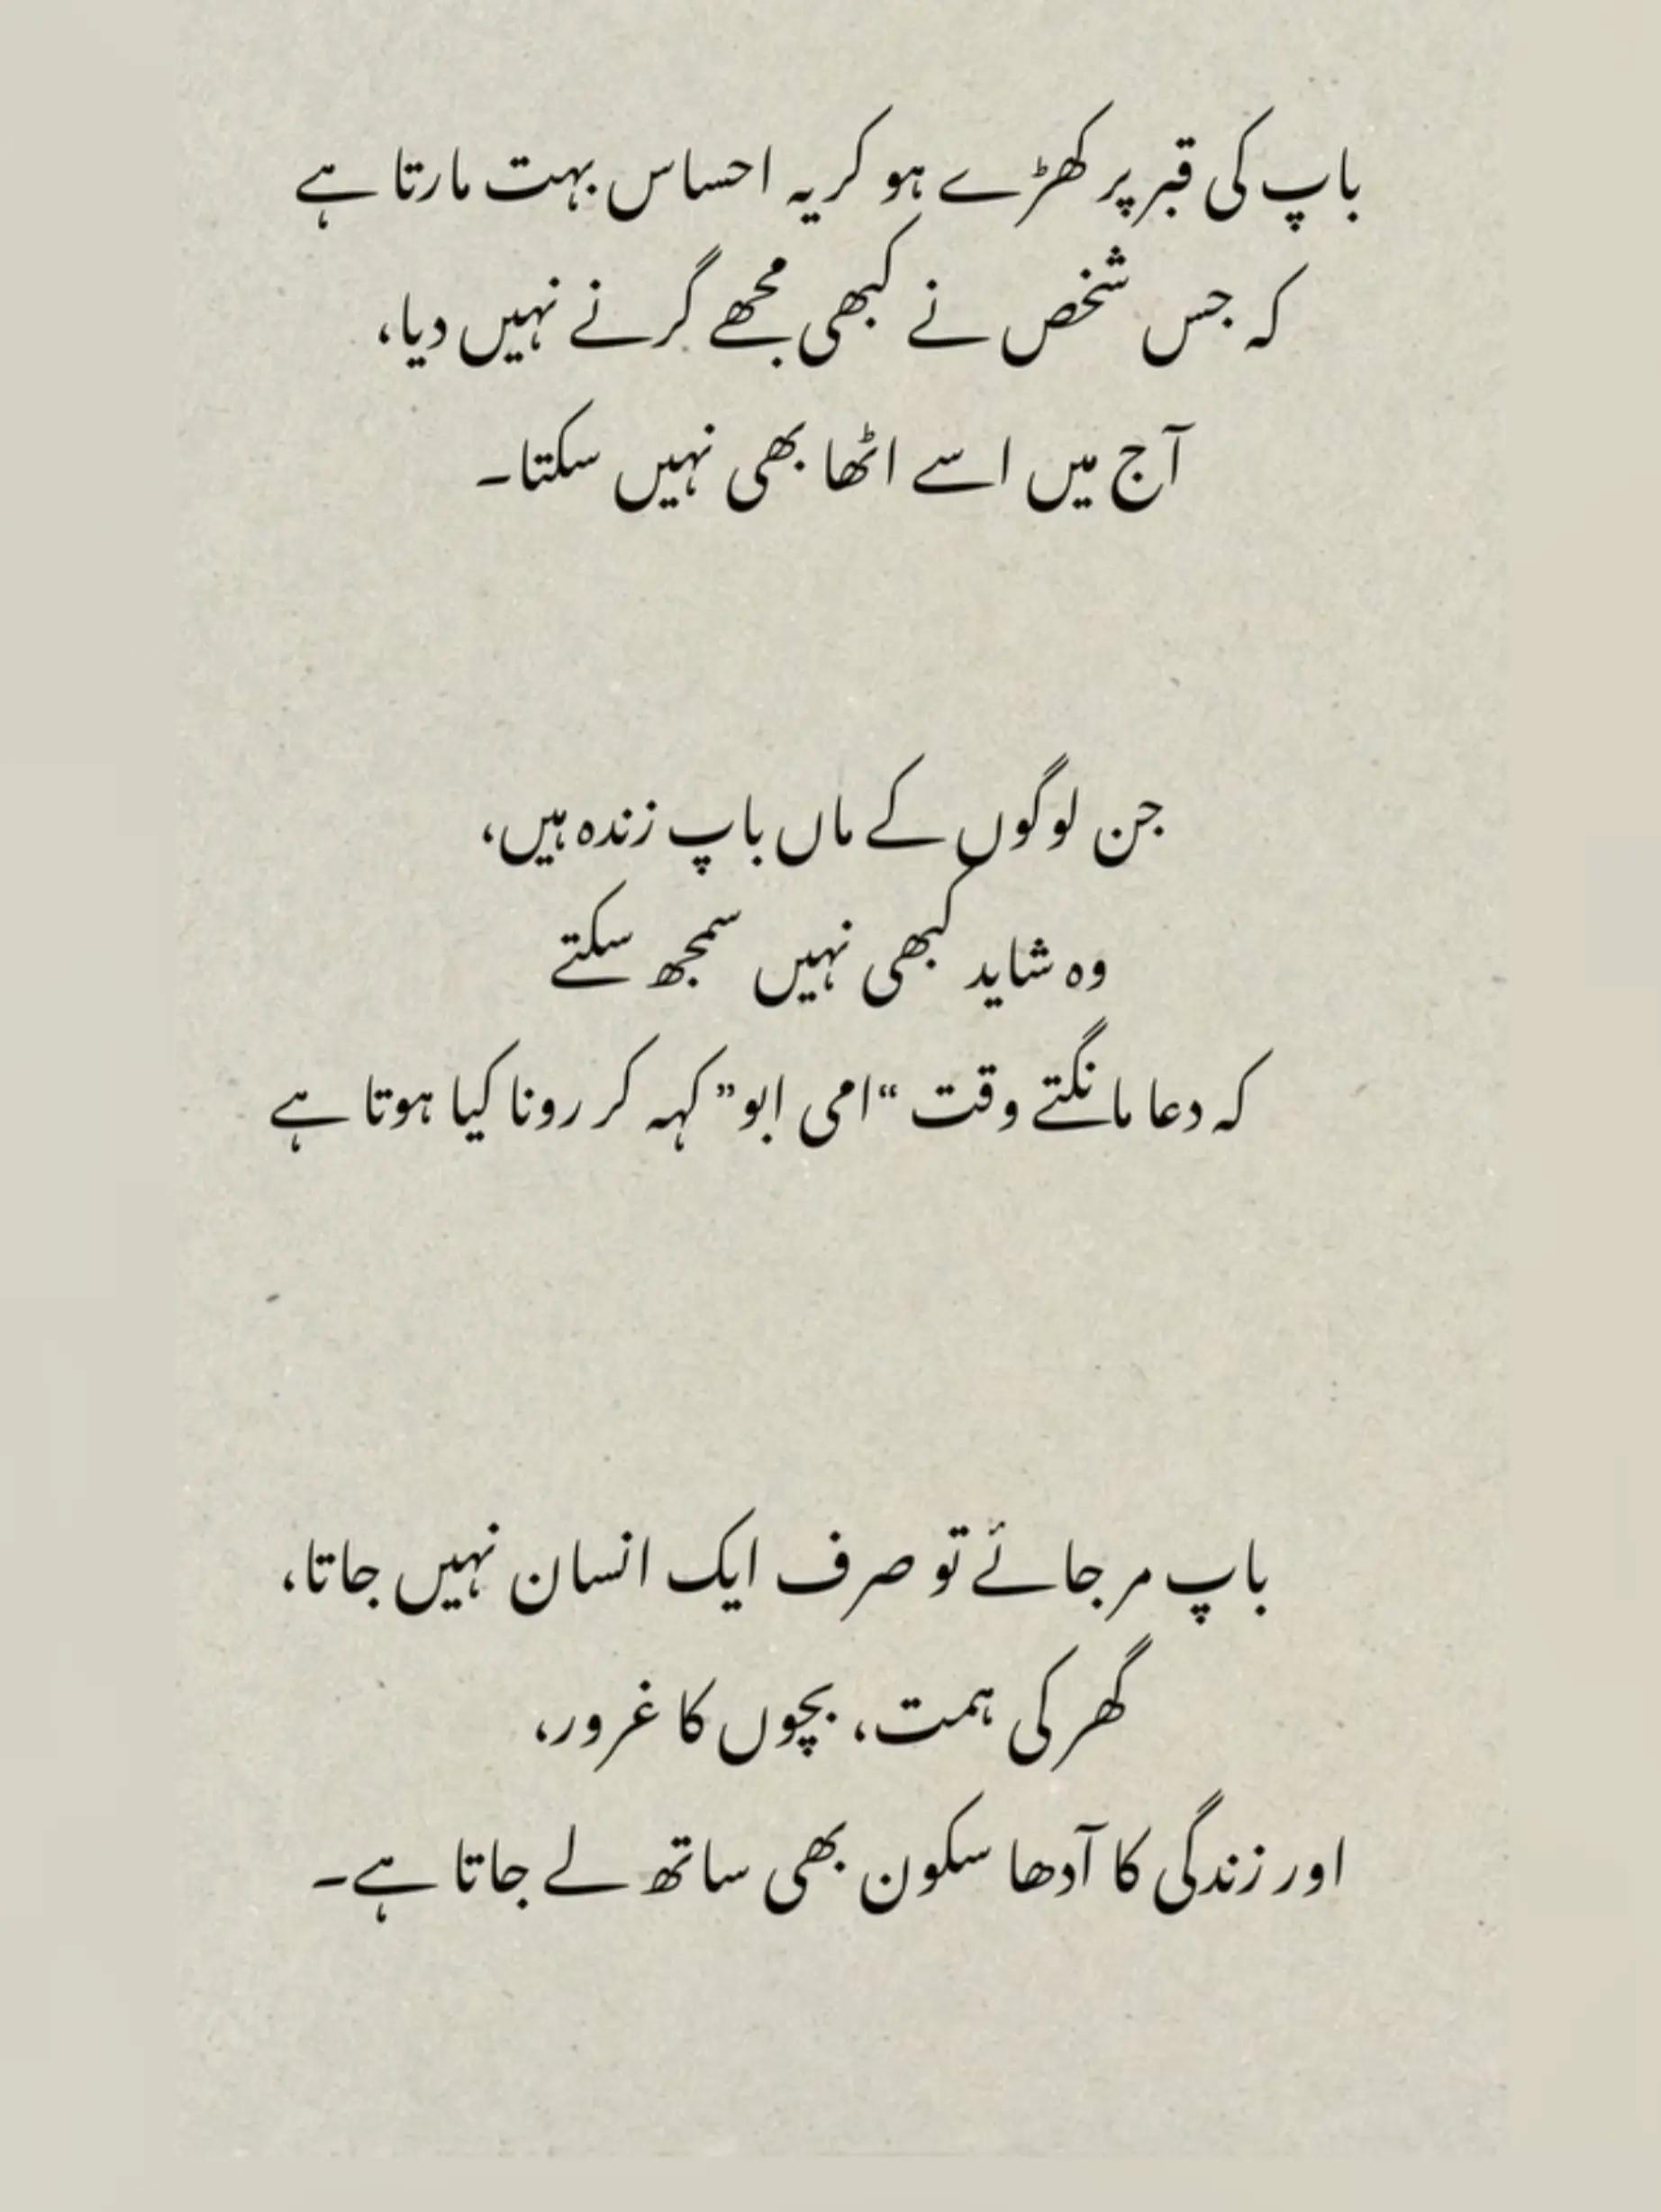 باپ کی قبر پر کھڑے ہو کر یہ احساس بہت مارتا ہے
کہ جس شخص نے کبھی مجھے گرنے نہیں دیا،
آج میں اسے اٹھا بھی نہیں سکتا۔
جن لوگوں کے ماں باپ زندہ ہیں،
وہ شاید کبھی نہیں سمجھ سکتے
کہ دعا مانگتے وقت “امی ابو” کہہ کر رونا کیا ہوتا ہے
باپ مر جائے تو صرف ایک انسان نہیں جاتا،
گھر کی ہمت، بچوں کا غرور،
اور زندگی کا آدھا سکون بھی ساتھ لے جاتا ہے۔